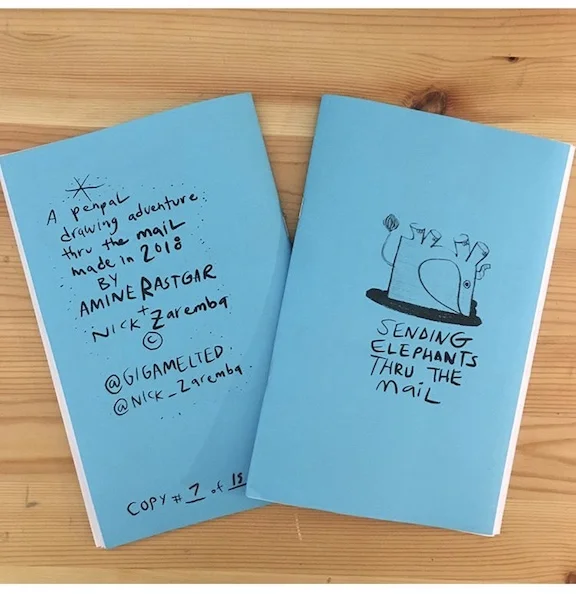 A penpal
drawing adventure
thru the mail
made in 2018
BY
AMINE RASTGAR
+
NICK Zaremba
©
@GIGAMELTED
@NICK_Zaremba
COPY # 7 of 15
SENDING
ELEPHANTS
THRU THE
MaiL